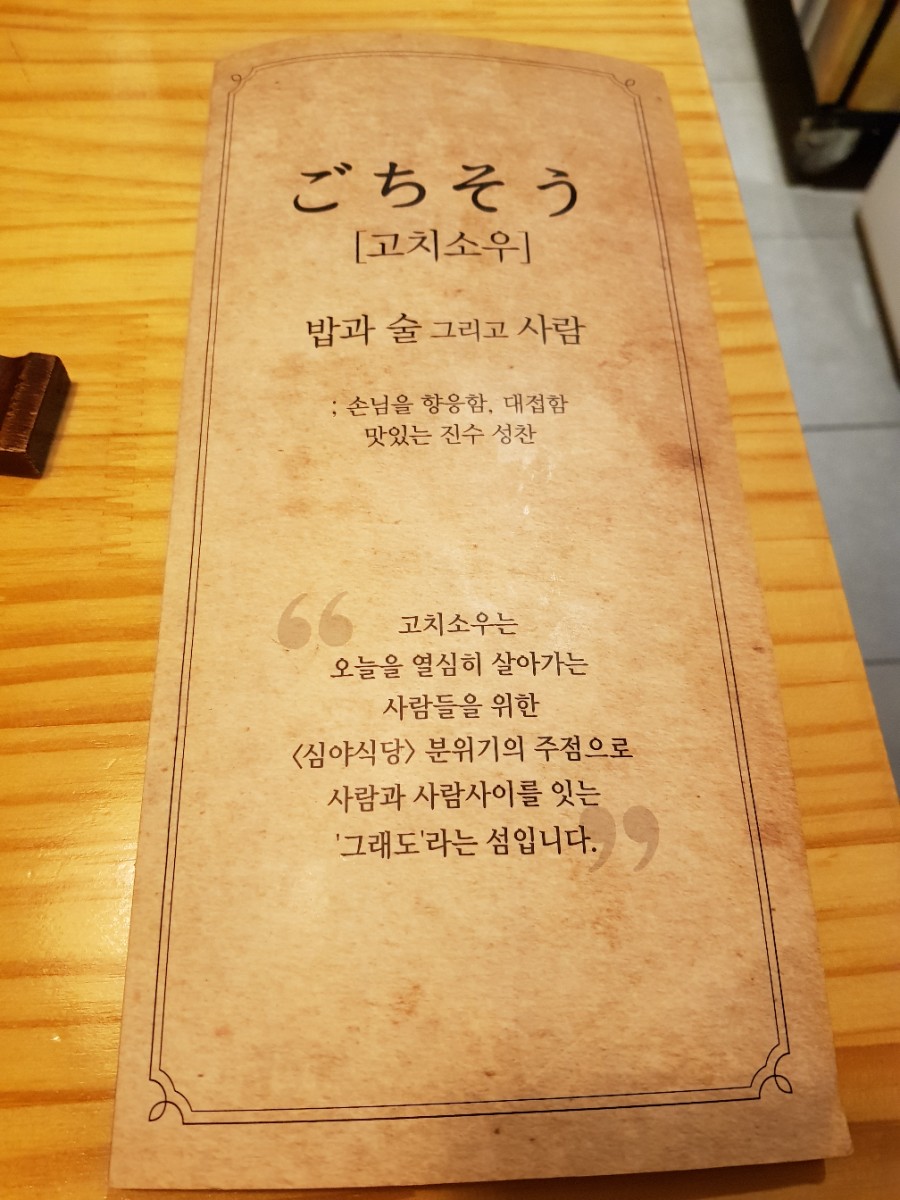 ごちそう
[고치소우]
밥과 술 그리고 사람
; 손님을 향응함, 대접함
맛있는 진수 성찬
“
고치소우는
오늘을 열심히 살아가는
사람들을 위한
〈심야식당〉 분위기의 주점으로
사람과 사람사이를 잇는
'그래도'라는 섬입니다.
”